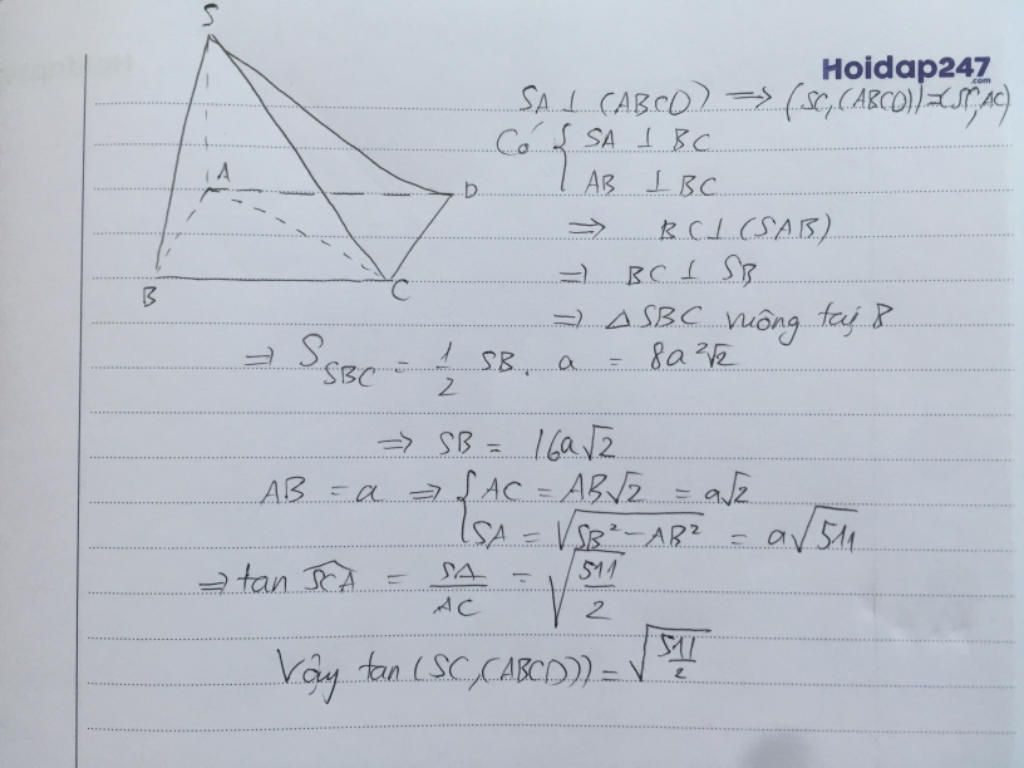 S
Hoidap247
.com
SA ⊥ (ABCD) => (SC,(ABCD)) = (SC,AC)
A
Có { SA ⊥ BC
AB ⊥ BC
D
=> BC ⊥ (SAB)
=> BC ⊥ SB
B
C
=> △SBC vuông tại B
=> S_SBC = 1/2 SB. a = 8a²√2
=> SB = 16a√2
AB = a => { AC = AB√2 = a√2
SA = √(SB² - AB²) = a√511
=> tan SCA = SA/AC = √(511/2)
Vậy tan (SC,(ABCD)) = √(511/2)